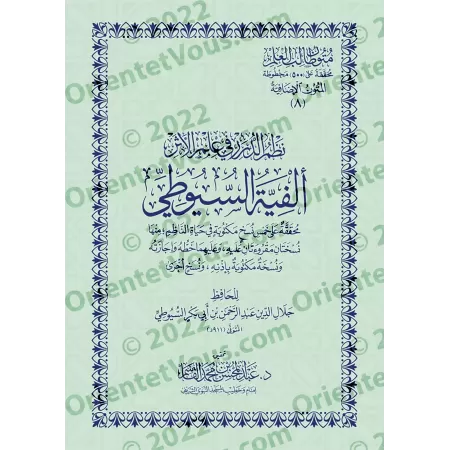 متون طالب العلم
محققة على (٥٠٠) مخطوطة
المتون الإضافية
(٨)
نظم الدرر في علم الأثر
ألفية السيوطي
محققة على خمس نسخ مكتوبة في حياة الناظم؛ منها
نسختان مقروءتان عليه، وعليهما خطه وإجازته
ونسخة مكتوبة بإذنه، ونسخ أخرى
للحافظ
جلال الدين عبد الرحمن بن أبي بكر السيوطي
المتوفى (٩١١هـ)
تحقيق
د. عبد المحسن بن محمد القاسم
إمام وخطيب المسجد النبوي الشريف
© 2022
OrientetVous.com